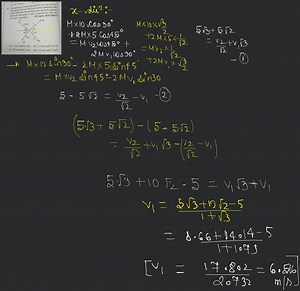 x-dirⁿ:-
M×10 cos30°
+2M×5 cos45°
= Mv₂ cos45° +
2Mv₁ cos30°
M×10×√3/2
+2M×5×1/√2
= Mv₂×1/√2
+2Mv₁×√3/2
5√3+5√2
= v₂/√2 + v₁√3
—①
M×10 sin30° - 2M×5 sin45°
= M×v₂ sin45° - 2Mv₁ sin30
5 - 5√2 = v₂/√2 - v₁ —②
(5√3 + 5√2) - (5 - 5√2)
= v₂/√2 + v₁√3 - (v₂/√2 - v₁)
5√3 + 10√2 - 5 = v₁√3 + v₁
v₁ = 5√3+10√2-5 / 1+√3
= 8.66+14.14-5 / 1+1.73
[v₁ = 17.802 / 2.732 = 6.516 m/s]